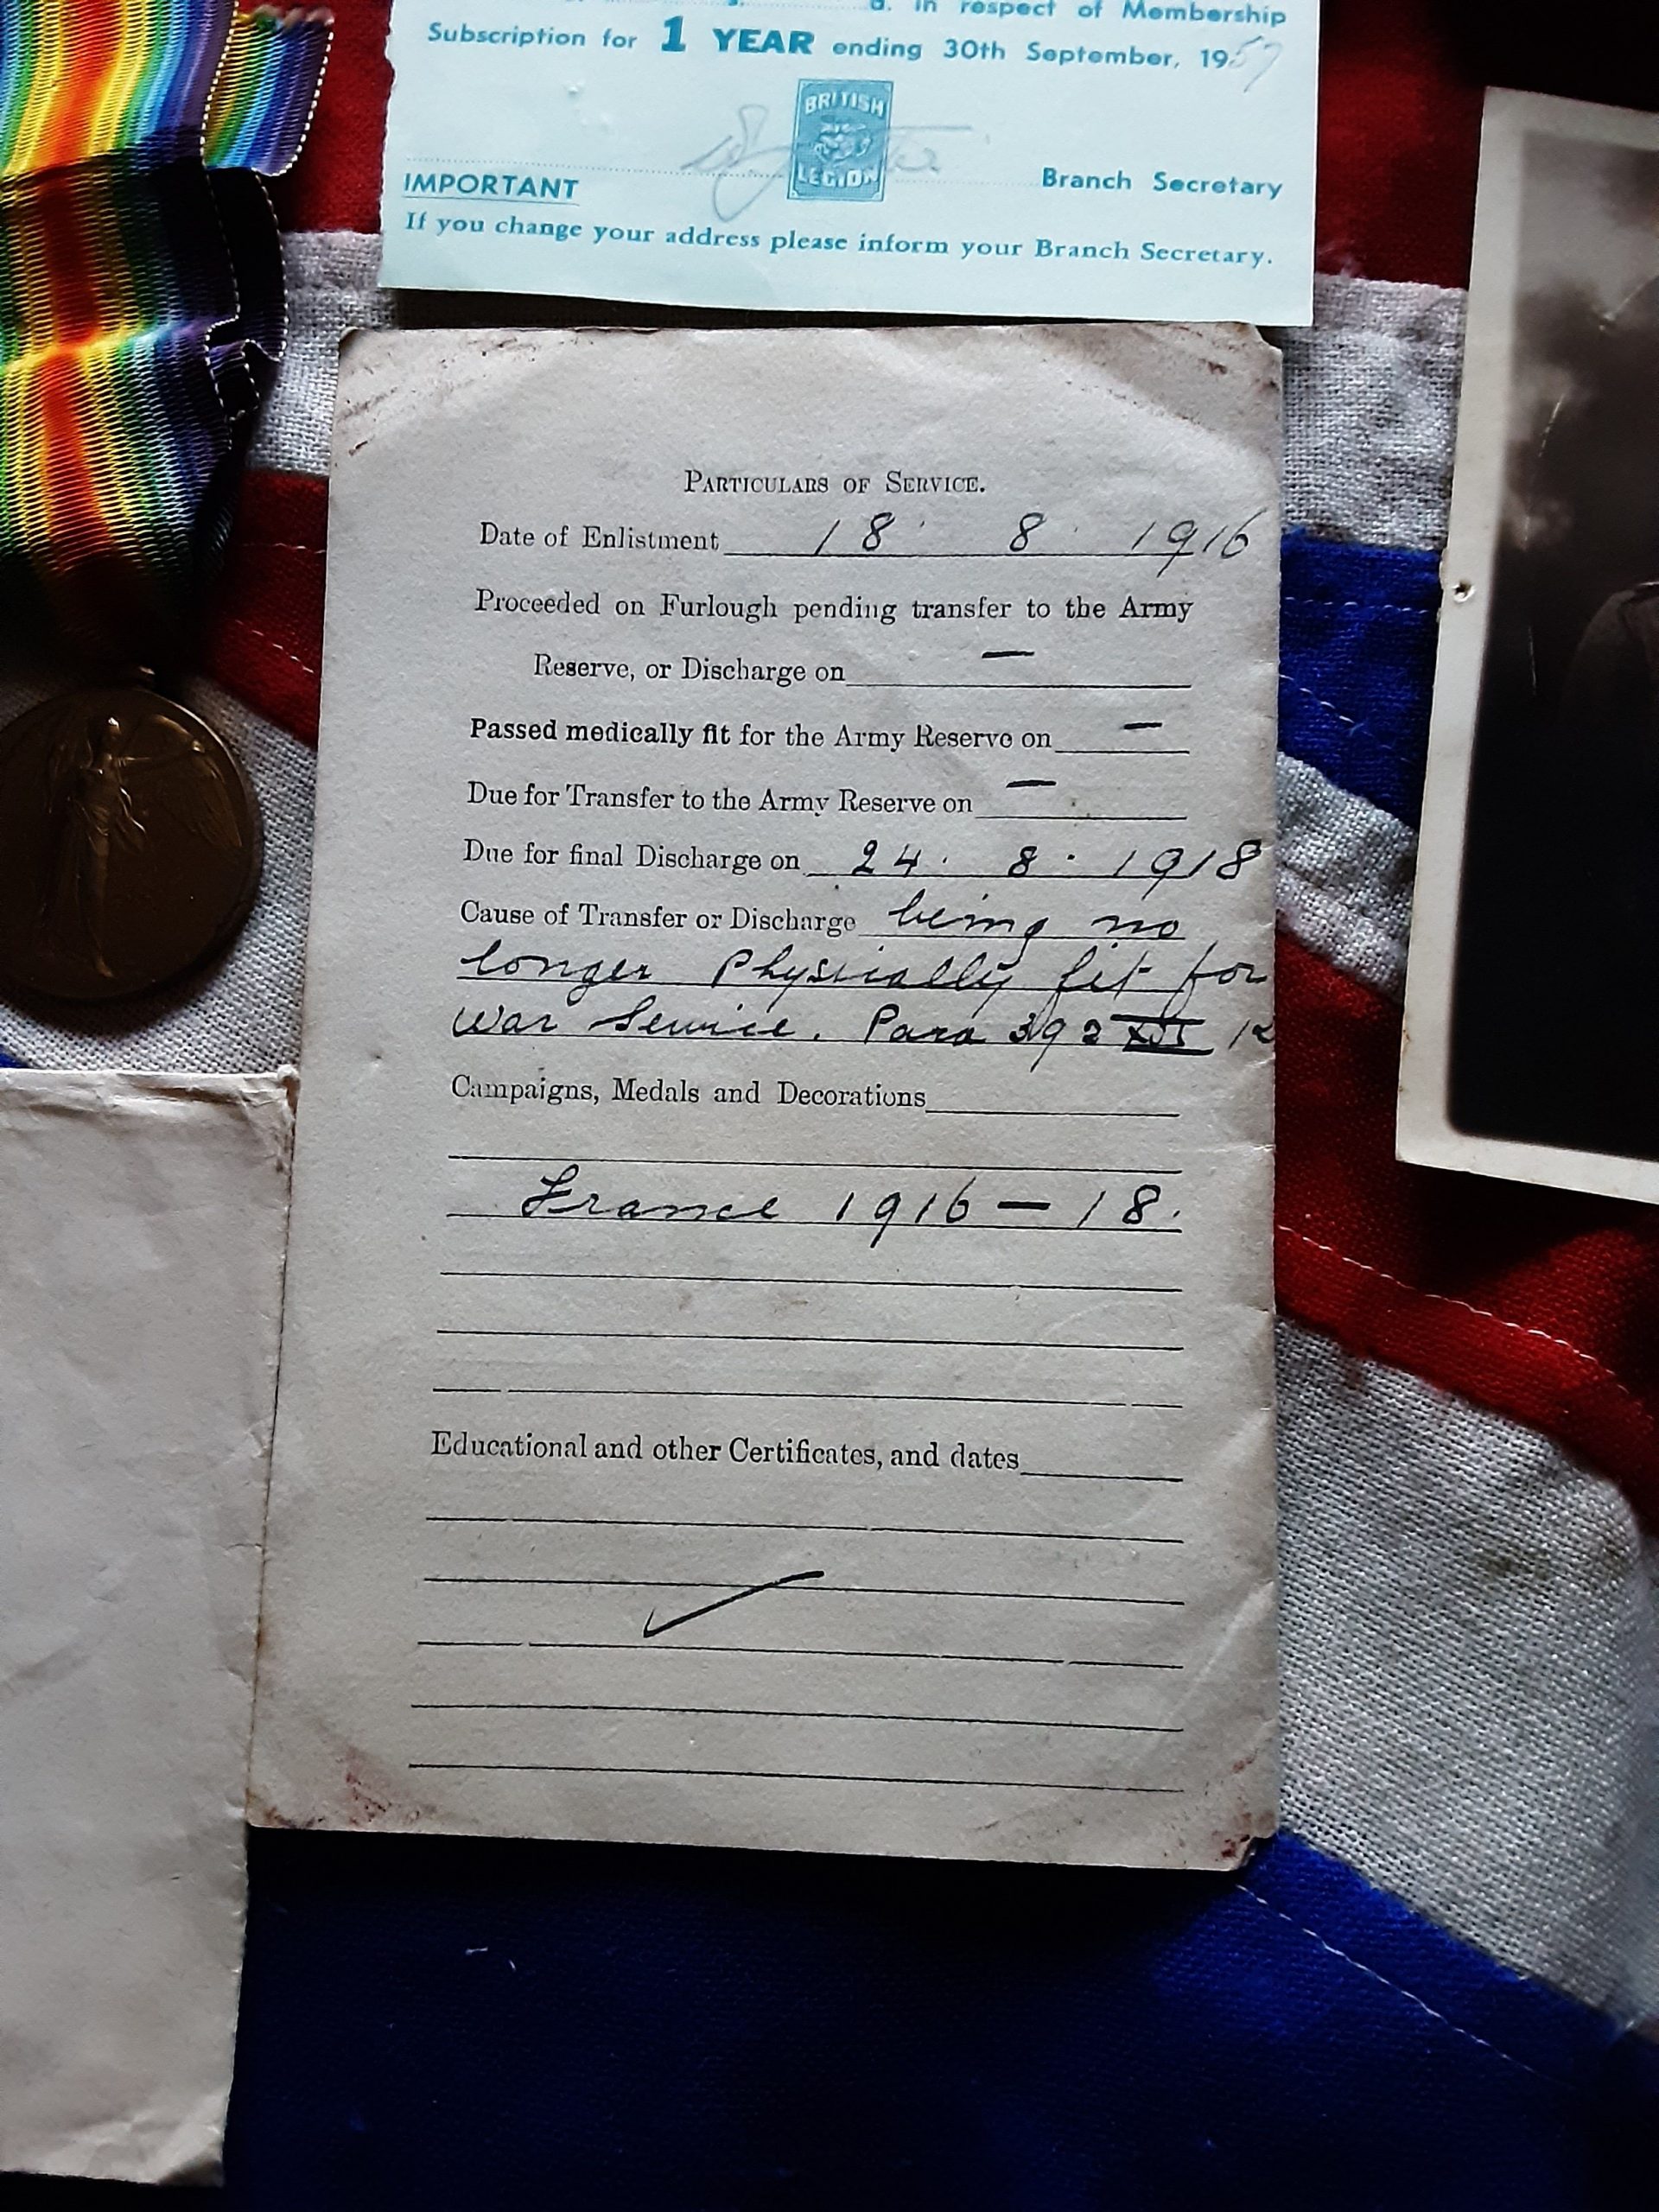 in respect of Membership
Subscription for 1 YEAR ending 30th September, 1957
BRITISH
LEGION
Branch Secretary
IMPORTANT
If you change your address please inform your Branch Secretary.
PARTICULARS OF SERVICE.
Date of Enlistment 18 . 8 . 1916
Proceeded on Furlough pending transfer to the Army
Reserve, or Discharge on —
Passed medically fit for the Army Reserve on —
Due for Transfer to the Army Reserve on —
Due for final Discharge on 24 . 8 . 1918
Cause of Transfer or Discharge being no
longer Physically fit for
War Service. Para 392 XVI
Campaigns, Medals and Decorations
France 1916 — 18.
Educational and other Certificates, and dates